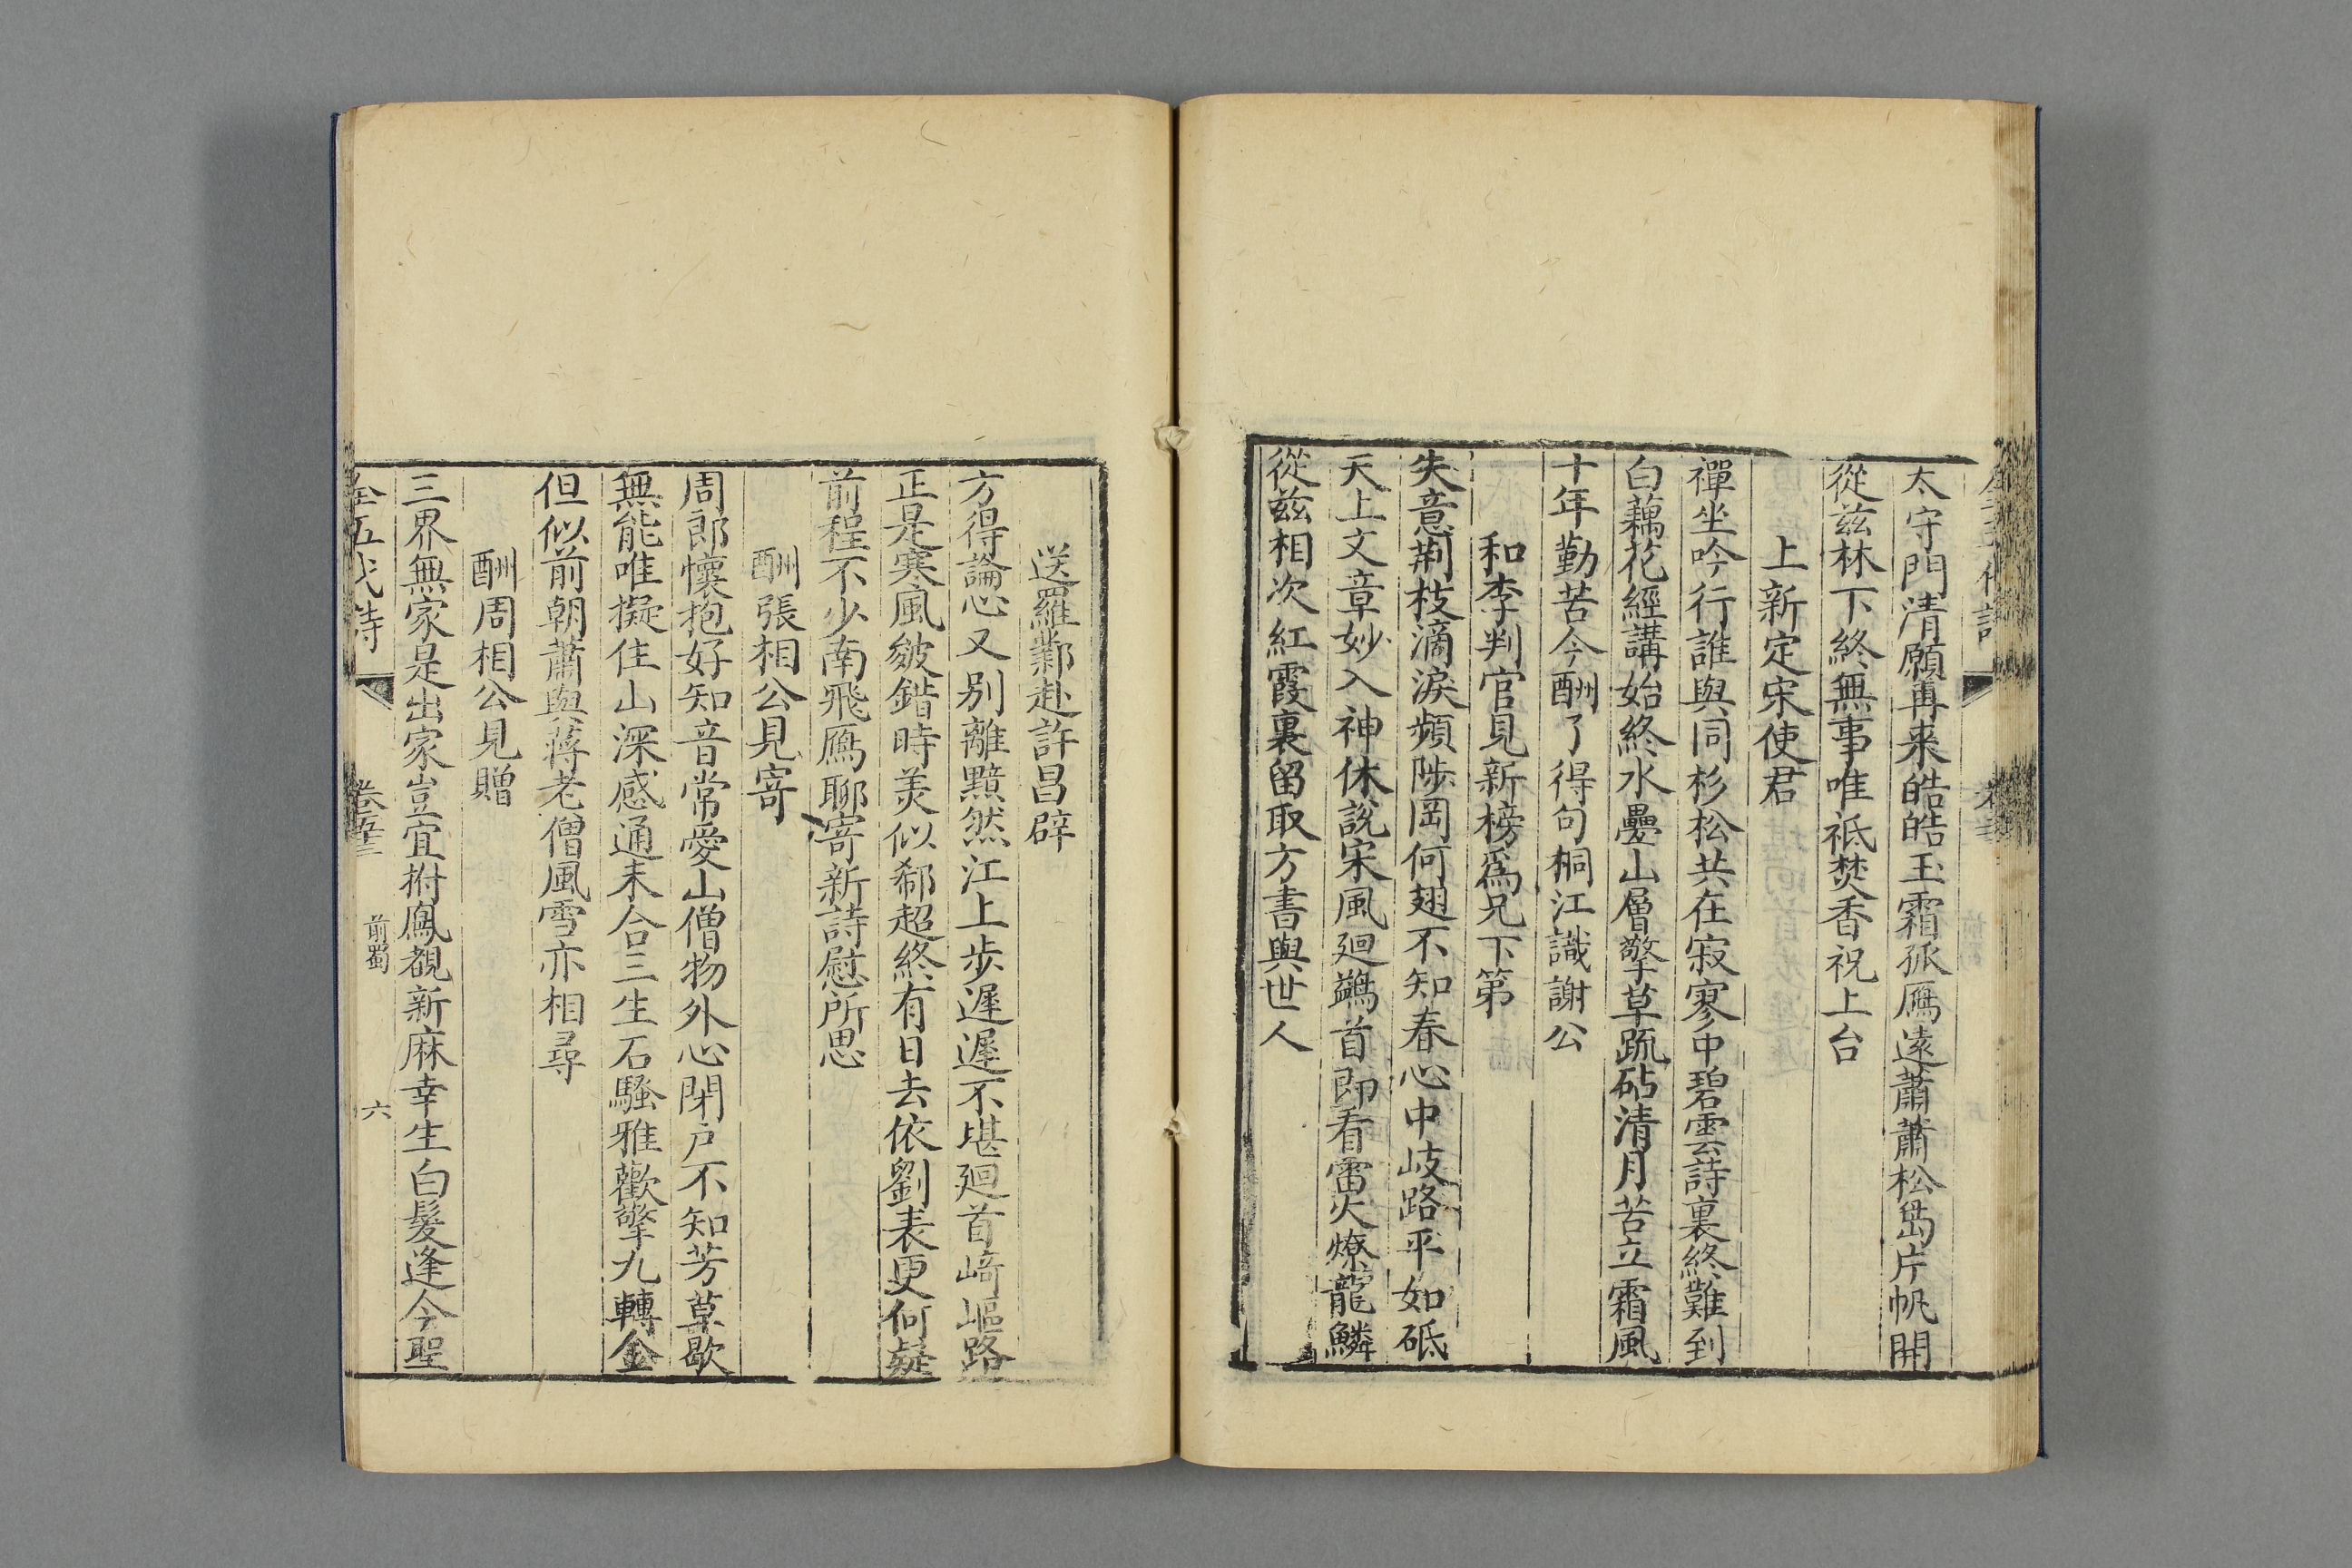 太守門清願再来皓皓玉霜孤鴈遠蕭蕭松島片帆開
從兹林下終無事唯祗焚香祝上台
上新定宋使君
禪坐吟行誰與同杉松共在寂寥中碧雲詩裏終難到
白藕花經講始終水疊山層擎草疏砧清月苦立霜風
十年勤苦今酬了得句桐江識謝公
和李判官見新榜爲兄下第
失意荆枝滴淚頻陟岡何翅不知春心中岐路平如砥
天上文章妙入神休説宋風廻鷁首即看雷火燎龍鱗
從兹相次紅霞裏留取方書與世人
送羅鄴赴許昌辟
方得論心又别離黯然江上步遲遲不堪廻首崎嶇路
正是寒風皴錯時羙似郗超終有日去依劉表更何疑
前程不少南飛鴈聊寄新詩慰所思
酬張相公見寄
周郎懷抱好知音常愛山僧物外心閉户不知芳草歇
無能唯擬住山深感通未合三生石騷雅歡擎九轉金
但似前朝蕭與蔣老僧風雪亦相尋
酬周相公見贈
三界無家是出家豈宜拊鳳覩新麻幸生白髮逢今聖
全五代詩
前蜀
六